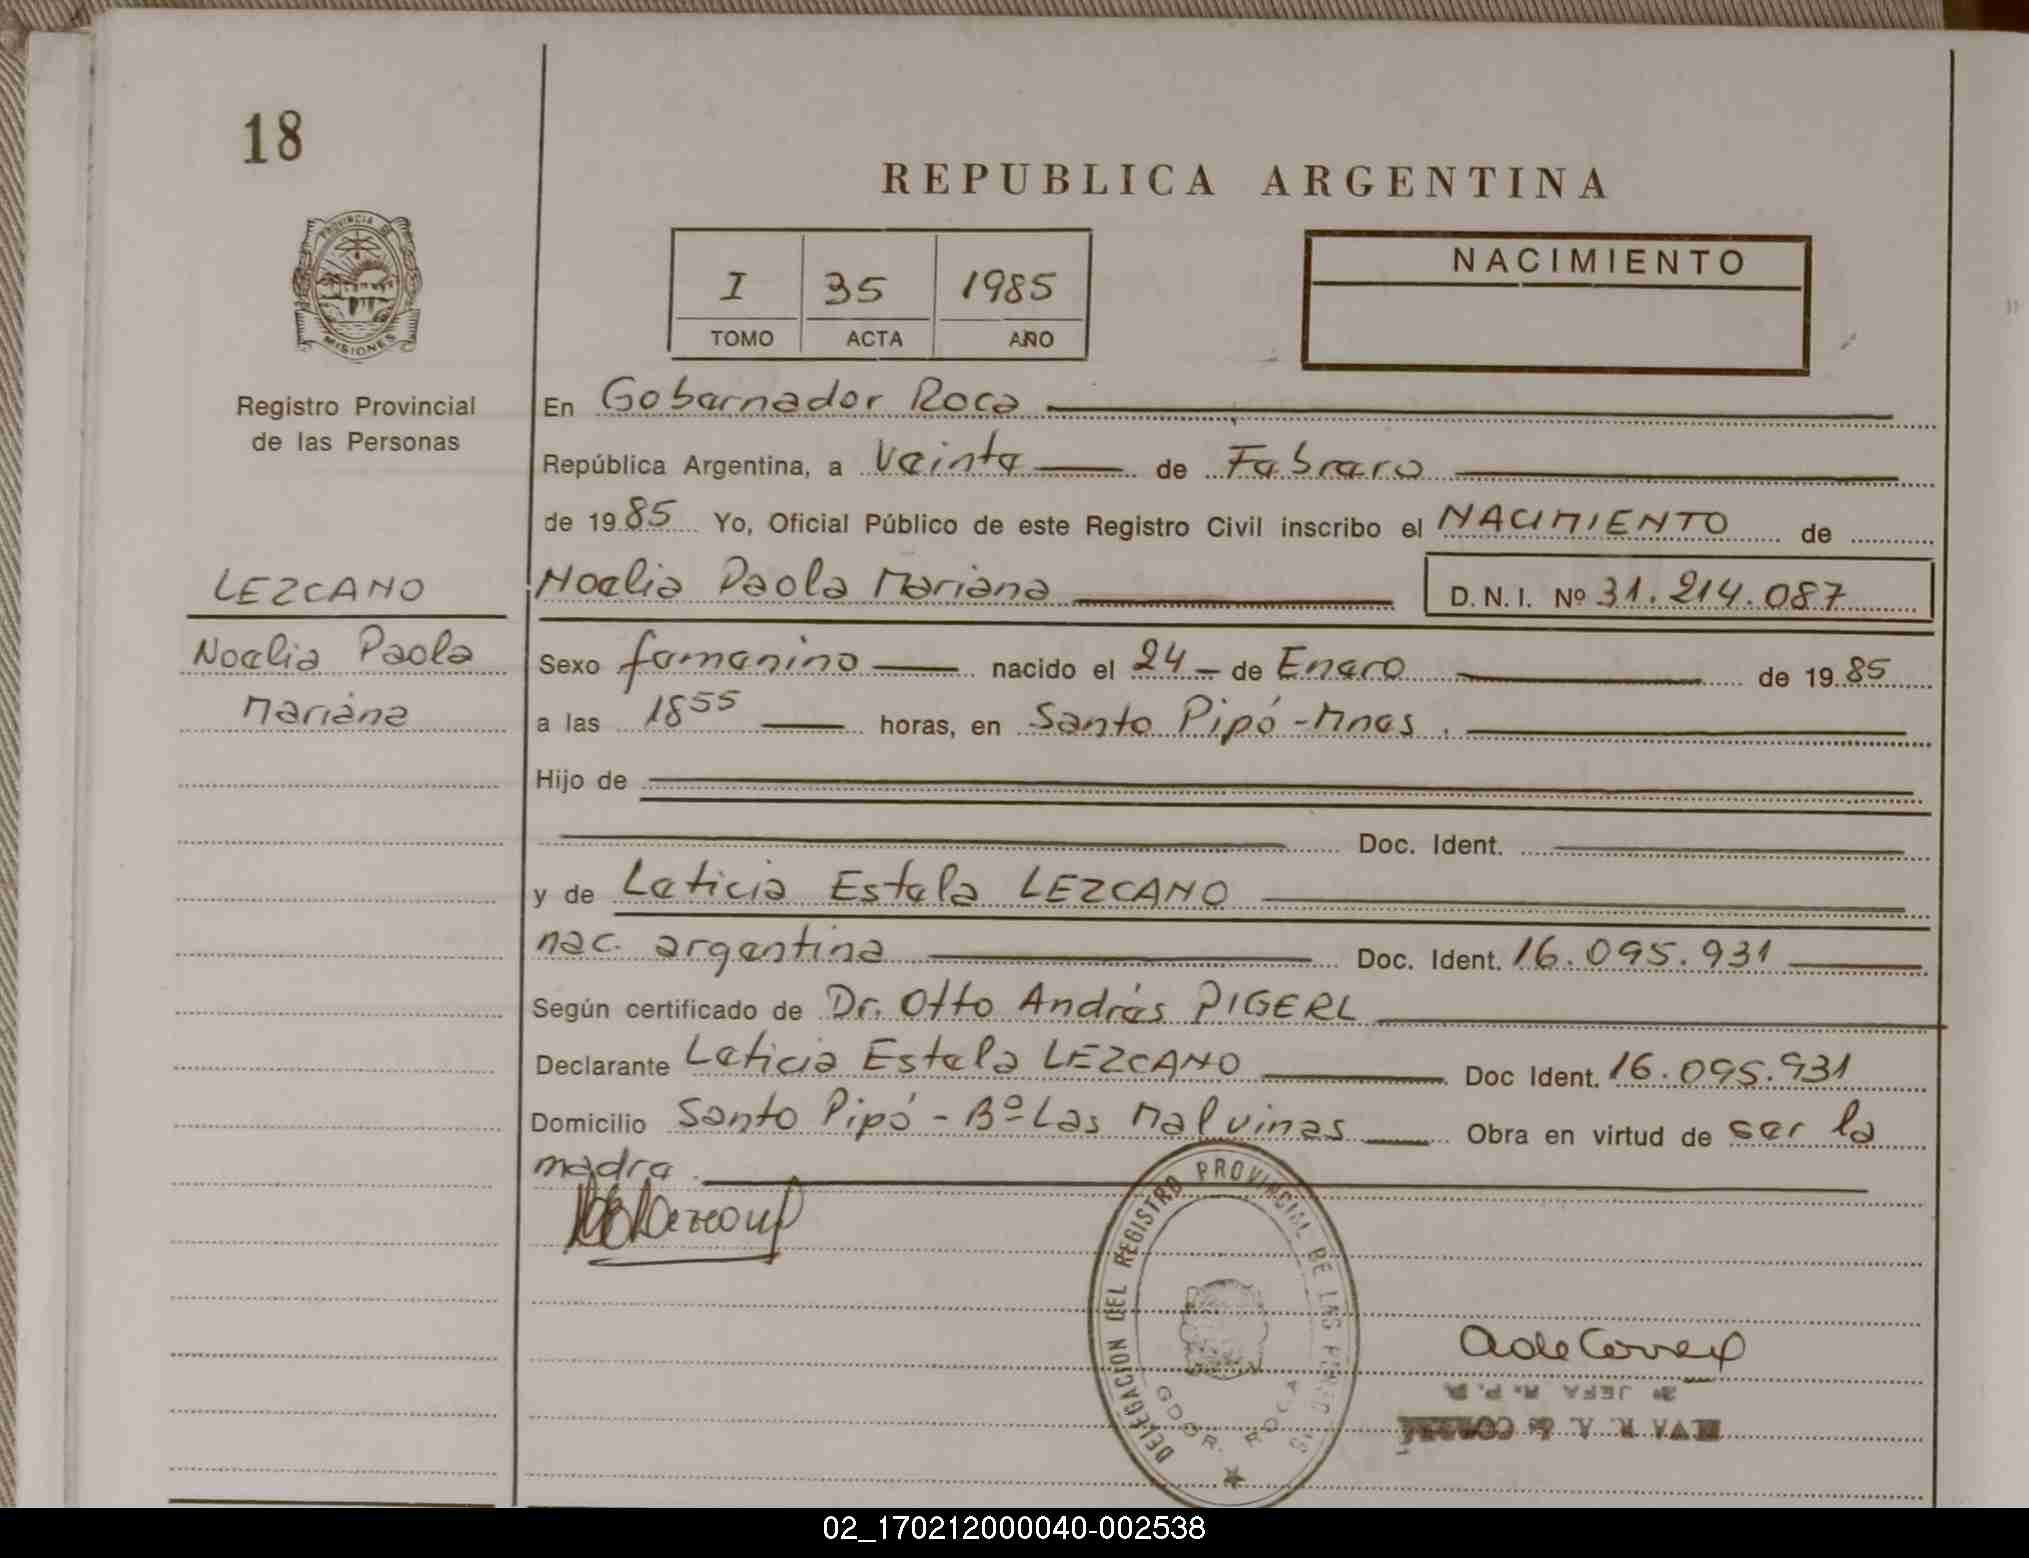 18
REPUBLICA ARGENTINA
PROVINCIA DE
MISIONES
I 35 1985
TOMO ACTA AÑO
NACIMIENTO
Registro Provincial
de las Personas
En Gobernador Roca
República Argentina, a Veinte de Febrero
de 1985 Yo, Oficial Público de este Registro Civil inscribo el NACIMIENTO de
LEZCANO
Noelia Paola
Mariana
Noelia Paola Mariana D.N.I. Nº 31.214.087
Sexo femenino nacido el 24 de Enero de 1985
a las 18 55 horas, en Santo Pipó - Mnes.
Hijo de
Doc. Ident.
y de Leticia Estela LEZCANO
nac. argentina Doc. Ident. 16.095.931
Según certificado de Dr. Otto Andrés PIGERL
Declarante Leticia Estela LEZCANO Doc Ident. 16.095.931
Domicilio Santo Pipó - Bº Las Malvinas Obra en virtud de ser la
madre.
DELEGACION DEL REGISTRO PROVINCIAL DE LAS PERSONAS
GDOR. ROCA
A de Correa
JEFA R. P. P.
R. A. de CORREA
02_170212000040-002538